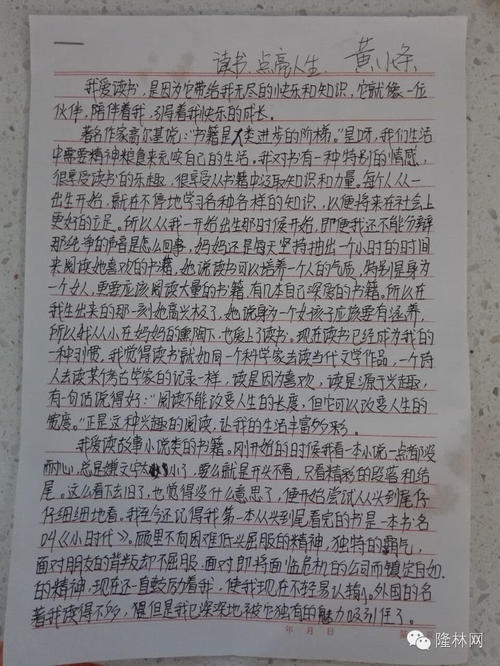 读书,点亮人生 黄小
我爱读书,是因为它带给我无尽的快乐和知识,它就像一位
伙伴,陪伴着我,引导着我快乐的成长。
著名作家高尔基说:“书籍是人类进步的阶梯。”是呀,我们生活
中需要精神粮食来充实自己的生活。我对书有一种特别的情感,
很享受读书的乐趣,很享受从书籍中汲取知识和力量。每个人从一
出生开始,就在不停地学习各种各样的知识,以便将来在社会上
更好的立足。所以从我一开始出生那时候开始,即使我还不能分辨
那纯净的声音是怎么回事,妈妈还是每天坚持抽出一个小时的时间
来阅读她喜欢的书籍,她说读书可以培养一个人的气质,特别是身为
一个女人,更要应该阅读大量的书籍,有几本自己深爱的书籍。所以在
我生出来的那一刻她高兴极了,她说身为一个女孩子应该要有涵养,
所以我从小在妈妈的熏陶下,也爱上了读书。现在读书已经成为我的
一种习惯,我觉得读书就如同一个科学家去读当代文学作品,一个诗
人去读某个考古学家的记录一样,读是因为喜欢,读是源于兴趣,
有一句话说得好:“阅读不能改变人生的长度,但它可以改变人生的
宽度。”正是这种兴趣的阅读,让我的生活丰富多彩。
我爱读故事小说类的书籍。刚开始的时候我看一本小说一点都没
耐心,总是嫌文字太小了,要么就是开头不看,只看精彩的段落和结
尾。这么看下去旧了,也觉得没什么意思了,便开始尝试从头到尾仔
仔细细地看。我至今还记得我第一本从头到尾看完的书是一本书名
叫《小时代》。顾里不向困难低头屈服的精神,独特的霸气,
面对朋友的背叛却不屈服,面对即将面临危机的公司而镇定自如
的精神,现在还一直鼓励着我,使我现在不轻易认输。外国的名
著我读得不多,但是我已深深地被它独有的魅力吸引住了。
年 月 日 第
隆林网